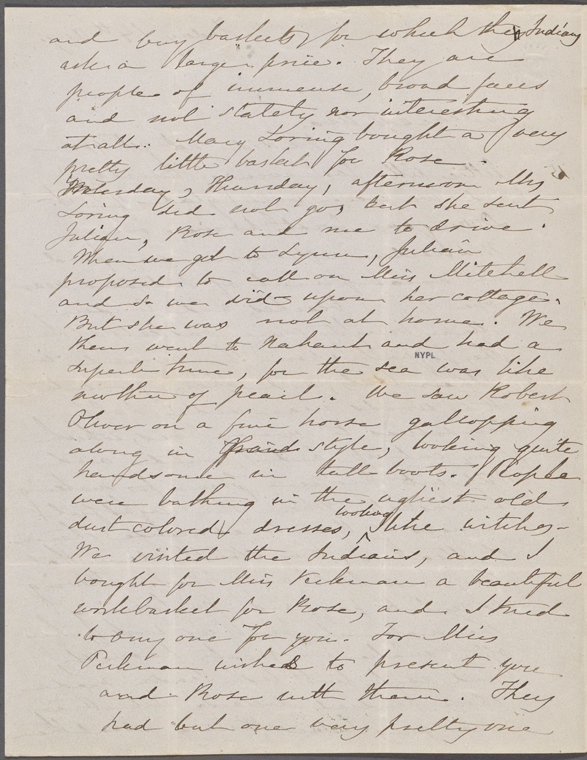 and buy baskets, for which the Indians
ask a large price. They are
people of immense, broad faces
and not stately nor interesting
at all. Mary Loring bought a very
pretty little basket for Rose.
Yesterday, Thursday, afternoon Mrs
Loring did not go, but she sent
Julian, Rose and me to drive.
When we got to Lynn, Julian
proposed to call on Miss Mitchell
and so we did upon her cottage.
But she was not at home. We
then went to Nahant and had a
superb time, for the sea was like
mother of pearl. We saw Robert
Oliver on a fine horse gallopping
along in style, looking quite
handsome in tall boots. People
were bathing in the ugliest old
dust colored dresses, looking like witches.
We visited the Indians, and I
bought for Miss Peckman a beautiful
workbasket for Rose, and I tried
to buy one for you. For Miss
wished to present you
and Rose with them. They
had but one very pretty one
NYPL